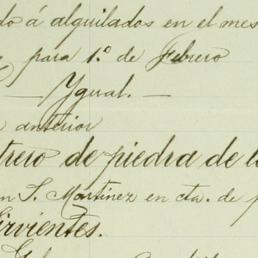 do á alquilados en el mes
para 1.º de Febrero
— Ygual. —
anterior
trero de piedra de la
n S. Martinez en cta. de p
irvientes.